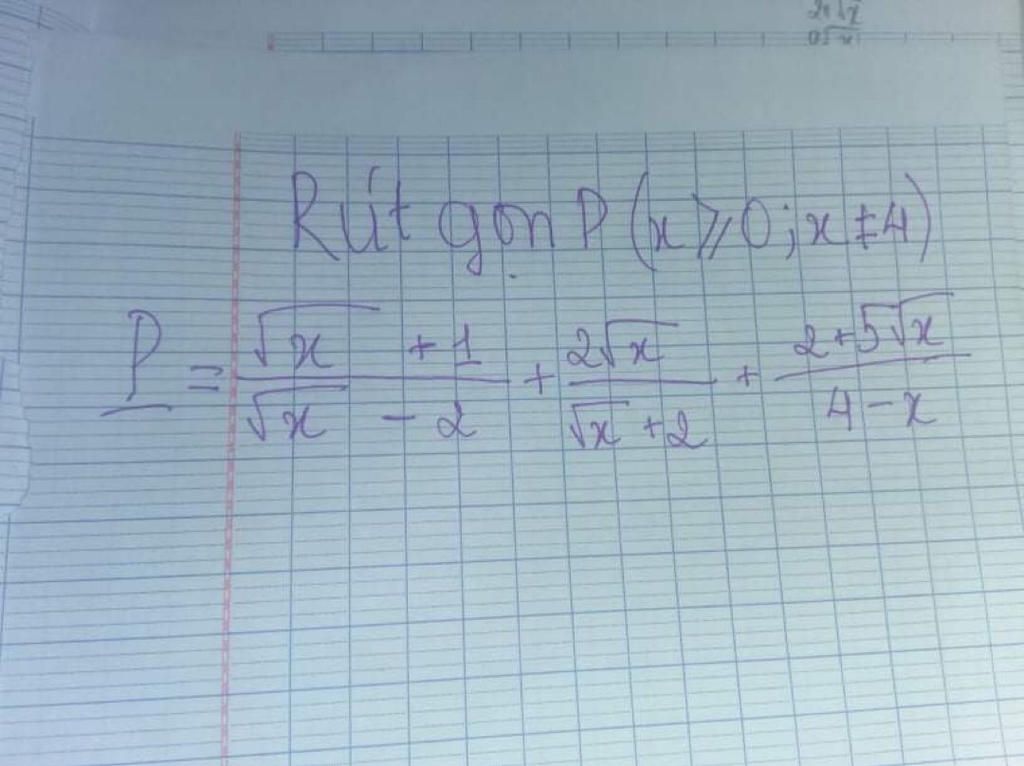 Rút gọn P (x ≥ 0; x ≠ 4)
P = (√x + 1)/(√x - 2) + (2√x)/(√x + 2) + (2 + 5√x)/(4 - x)